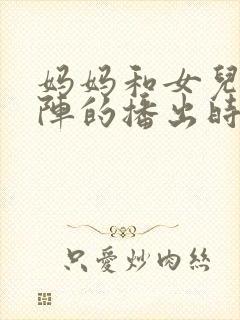 妈妈和女兒
陣的播出時
只愛炒肉絲